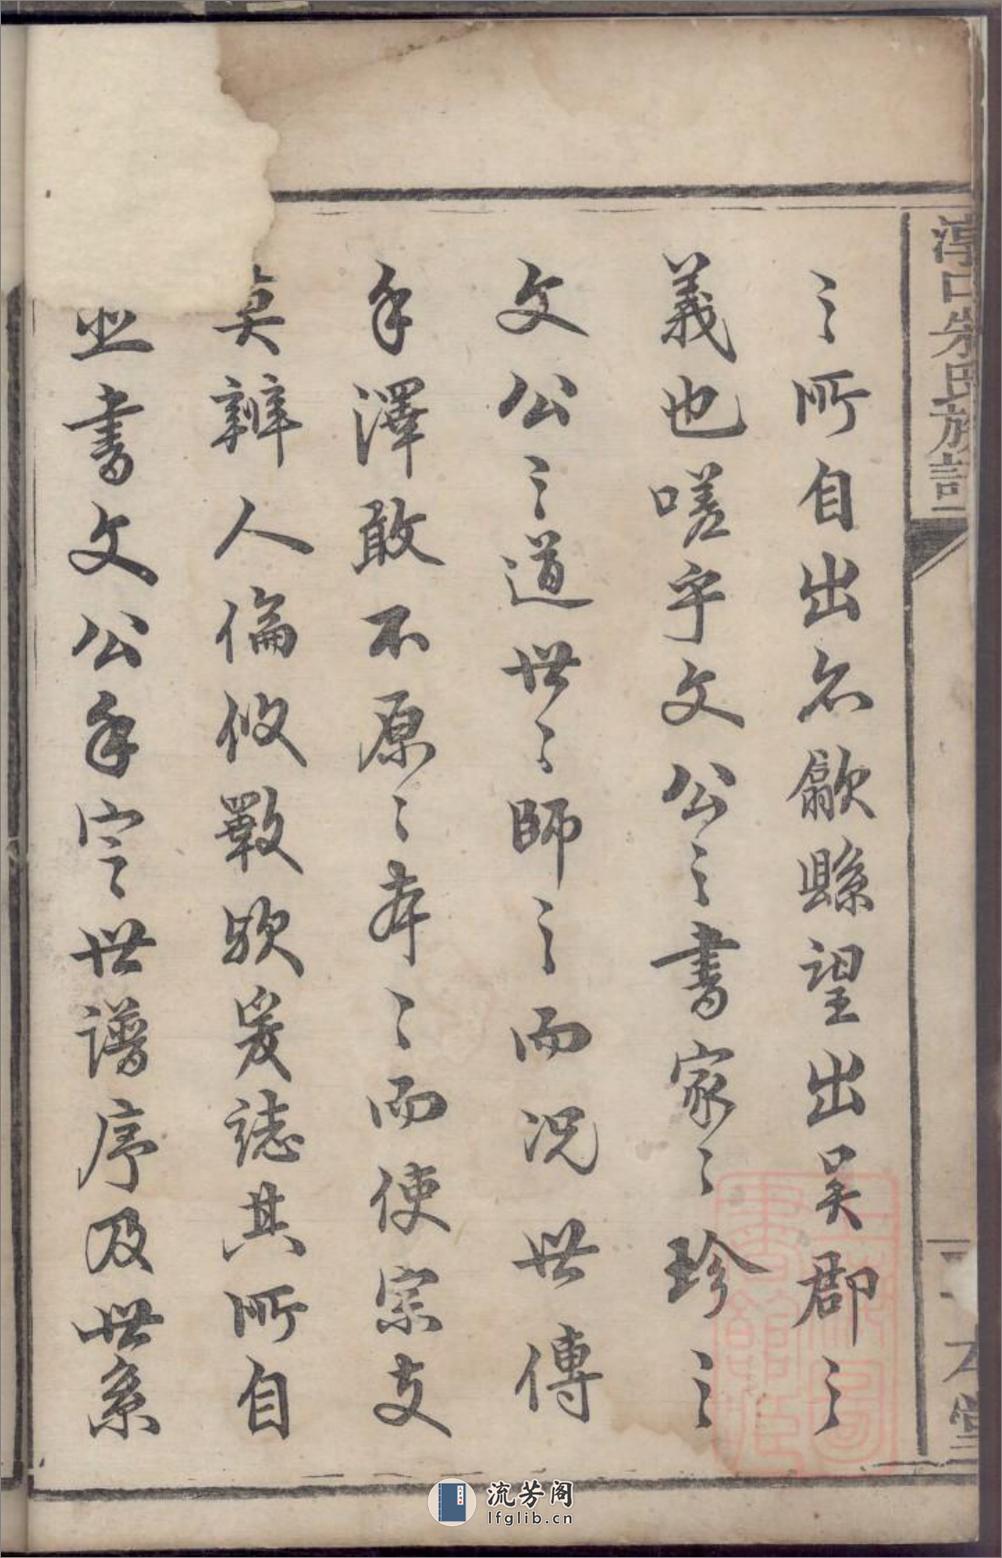 之所自出名歙縣望出吴郡之
義也嗟乎文公之書家〻珍之
文公之道世〻師之而况世傳
手澤敢不原〻本〻而使宗支
莫辨人倫攸斁欤爰誌其所自
並書文公手定世譜序及世系
朱氏族譜
本堂
流芳阁
lfglib.cn